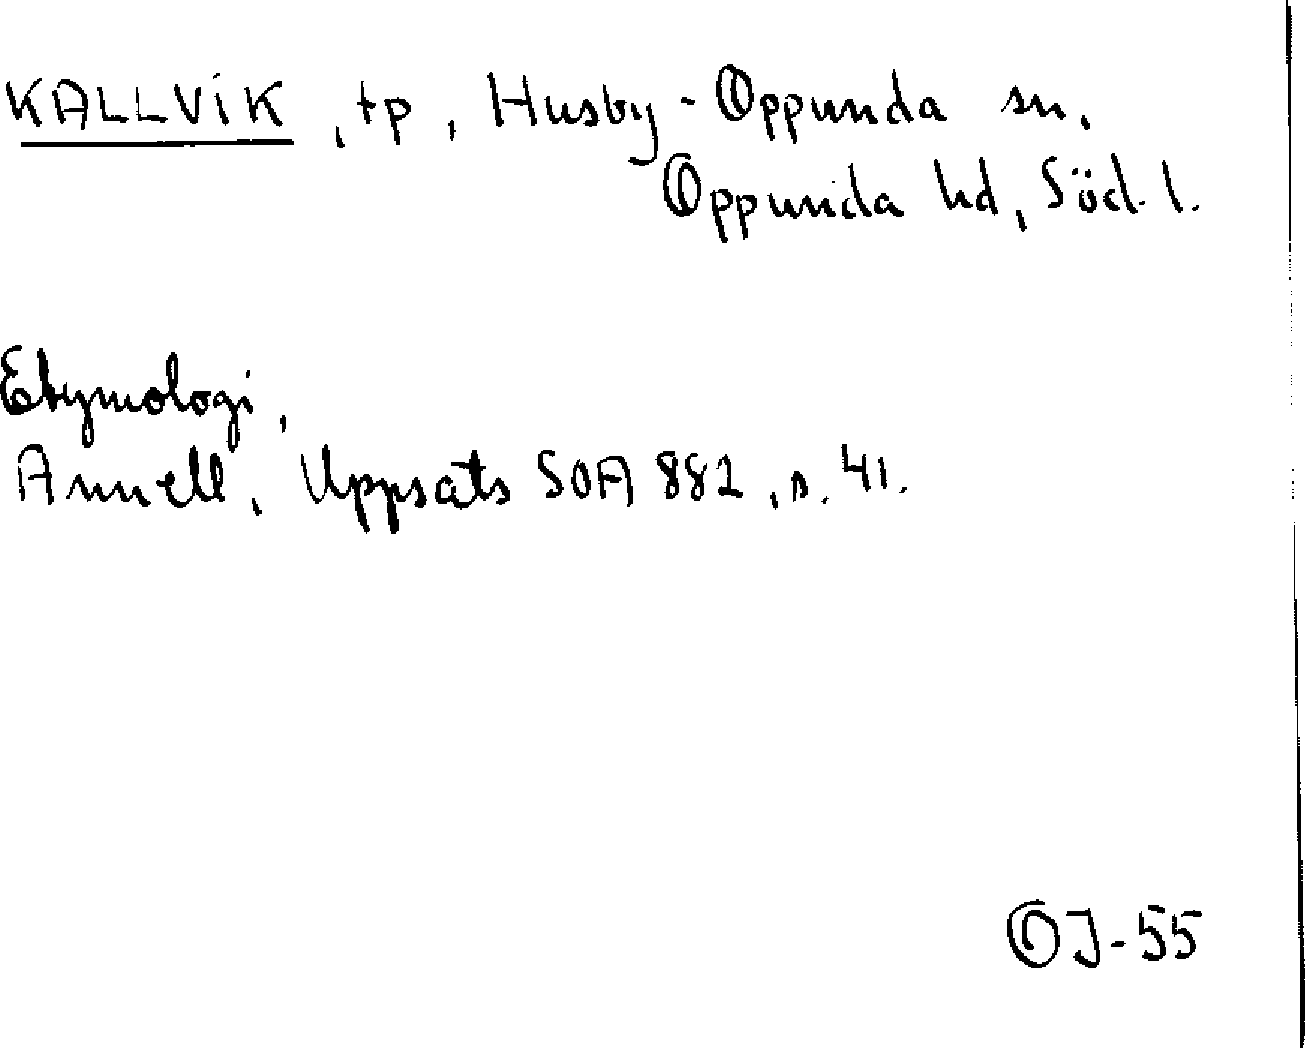 KALLVIK, tp, Husby-Oppunda sn,
Oppunda hd, Söd. l.
Etymologi,
Annell, Uppsats SOA 882, s. 41.
OJ-55